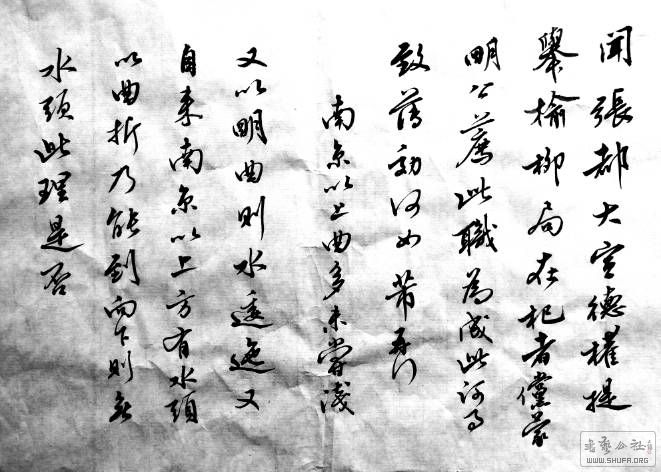 聞張都大宣德權提
舉榆柳局在杞者儻蒙
明公薦此職為成此河事
致薄効何如芾再
南京以上曲多未嘗淺
又以明曲則水逶迤又
自來南京以上方有水頭
以曲折乃能到向下則無
水頭此理是否
書藝公社
WWW.SHUFA.ORG